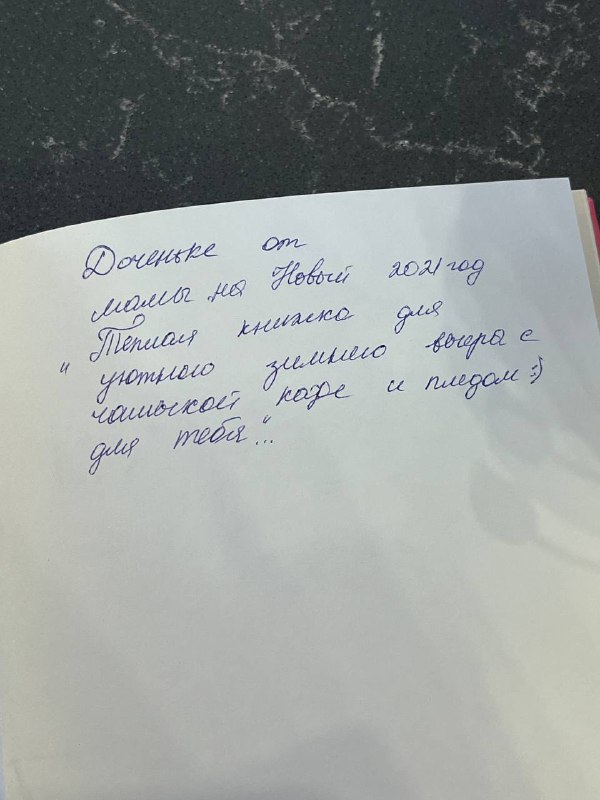 Доченьке от
мамы на Новый 2021 год
"Тёплая книжка для
уютного зимнего вечера с
чашкой кофе и пледом :)
для тебя"...